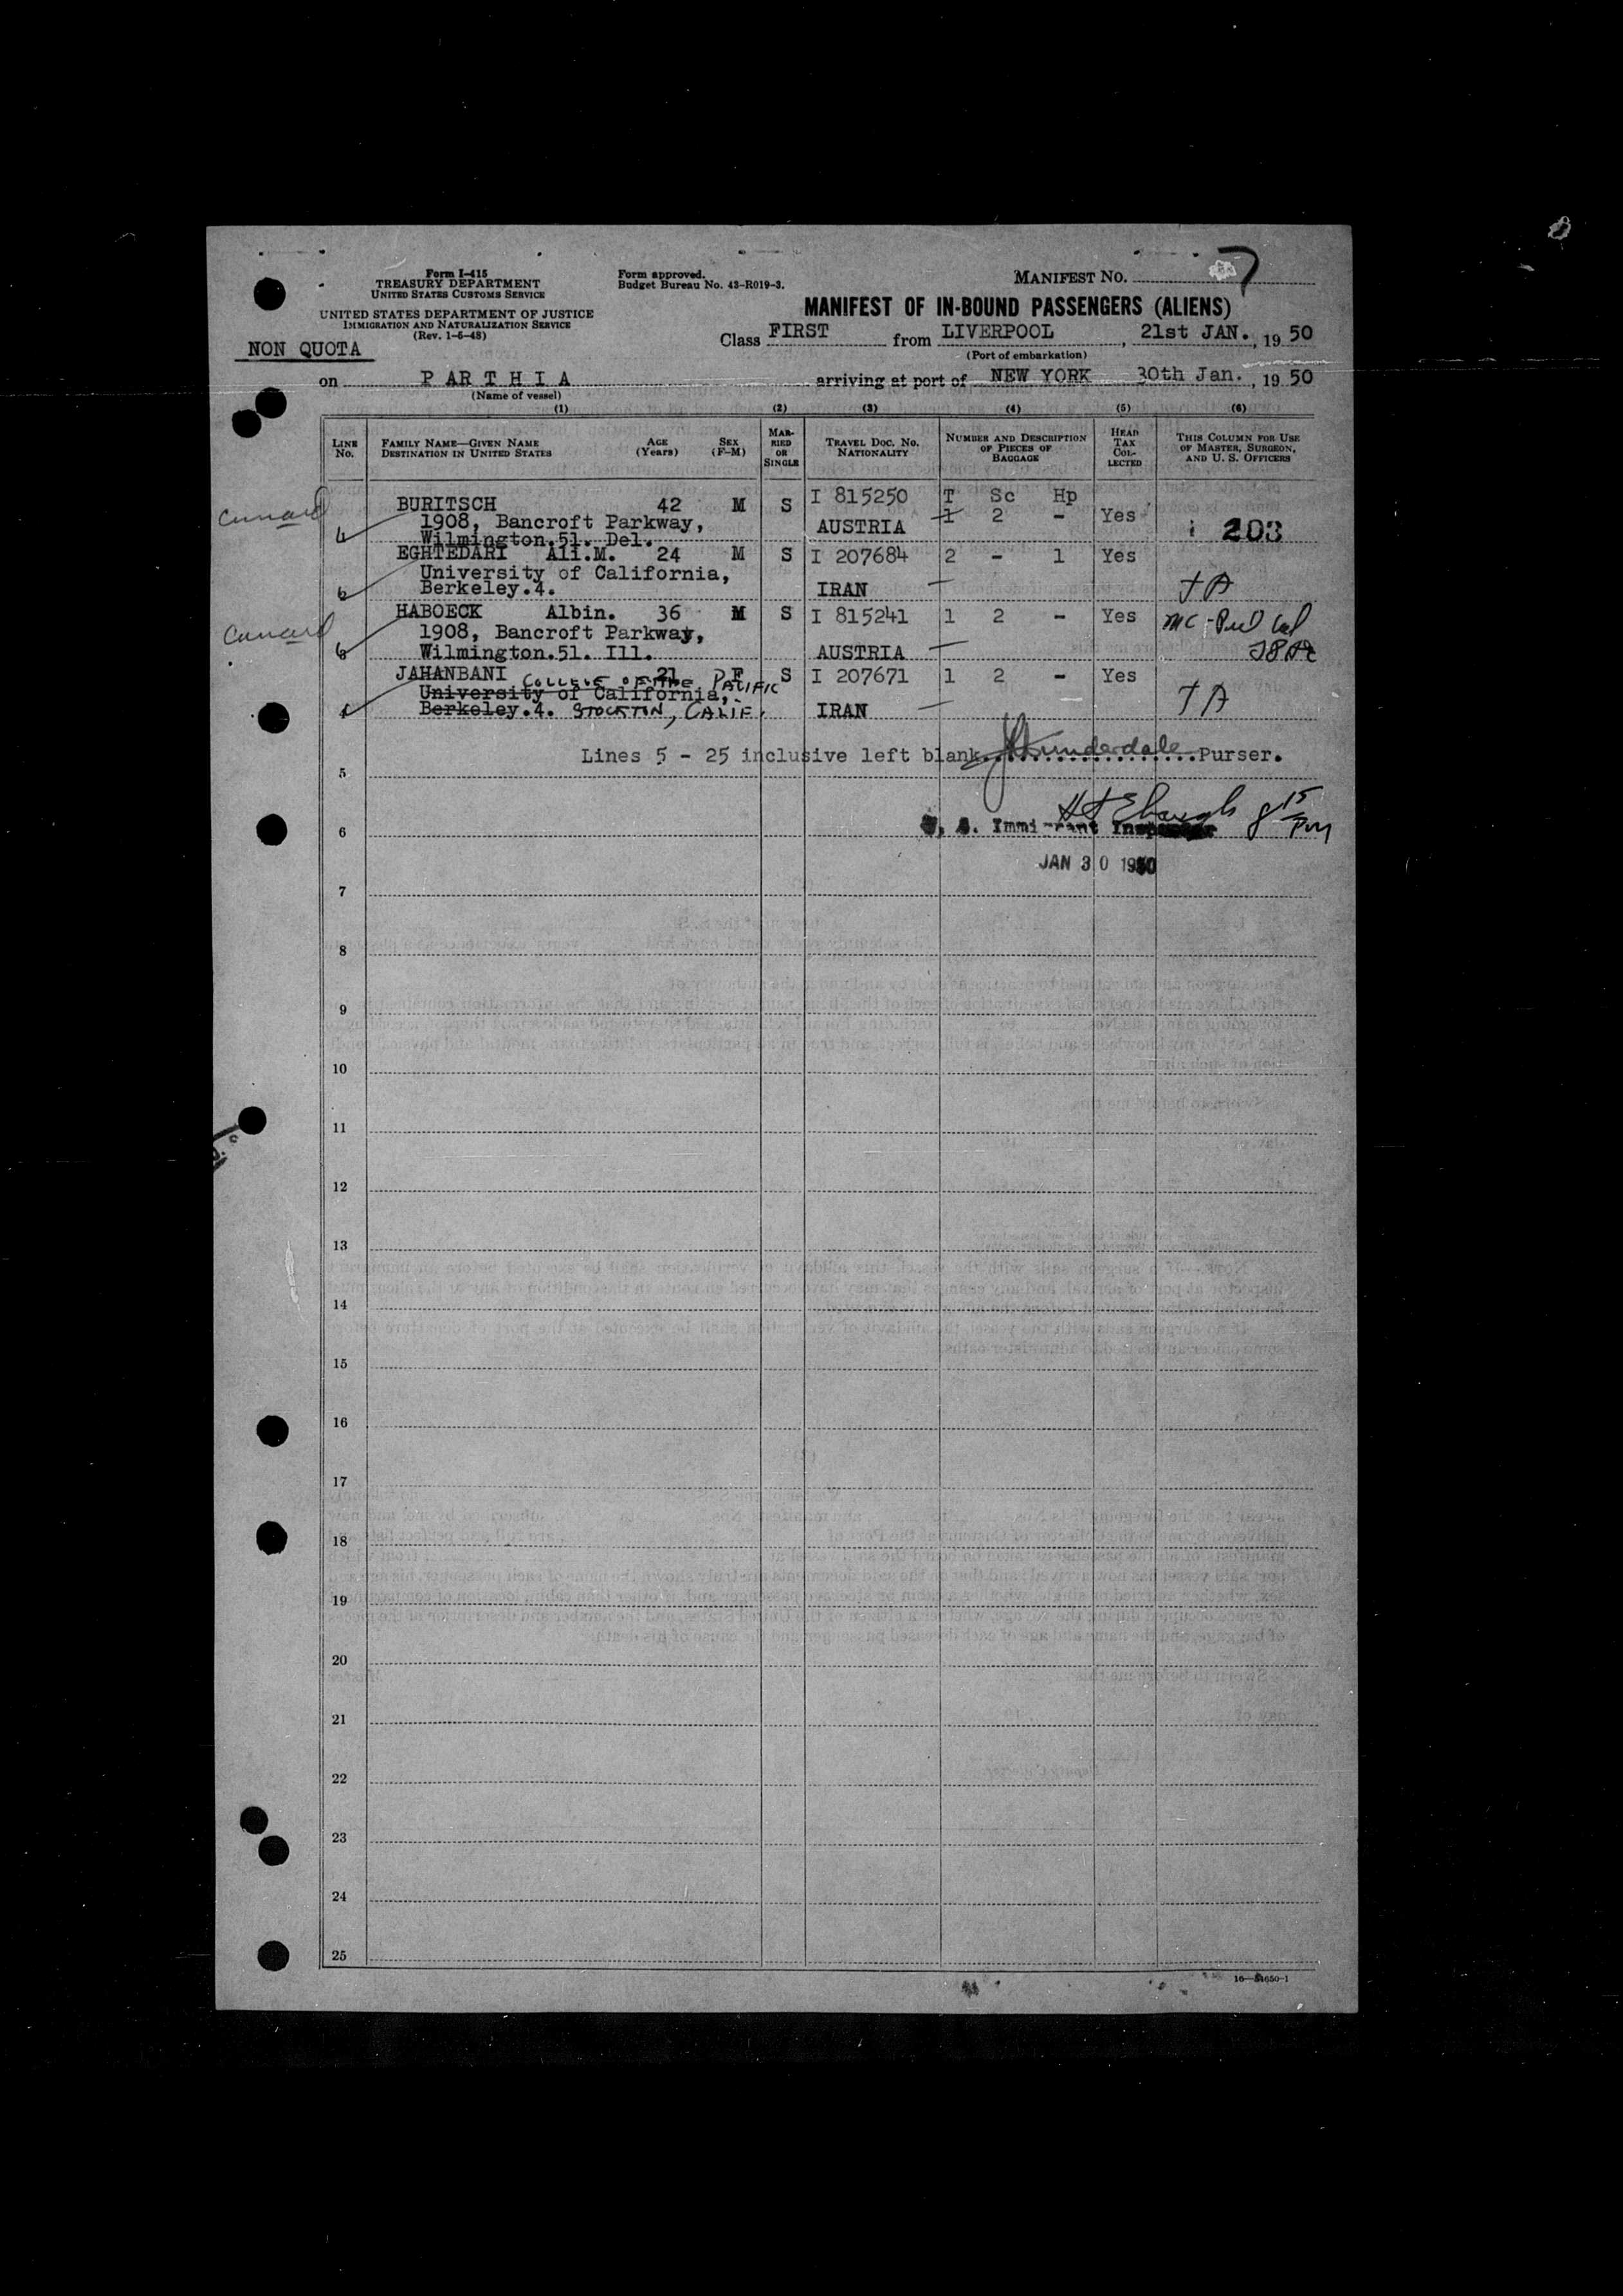 Form I-415
TREASURY DEPARTMENT
UNITED STATES CUSTOMS SERVICE
UNITED STATES DEPARTMENT OF JUSTICE
IMMIGRATION AND NATURALIZATION SERVICE
(Rev. 1-6-48)
Form approved.
Budget Bureau No. 43-R019-3.
MANIFEST NO. 7
MANIFEST OF IN-BOUND PASSENGERS (ALIENS)
NON QUOTA
Class FIRST from LIVERPOOL, 21st JAN., 19 50
(Port of embarkation)
on PARTHIA arriving at port of NEW YORK 30th Jan., 19 50
(Name of vessel)
(1) (2) (3) (4) (5) (6)
LINE NO. FAMILY NAME—GIVEN NAME DESTINATION IN UNITED STATES AGE (Years) SEX (F-M) MARRIED OR SINGLE TRAVEL DOC. NO. NATIONALITY NUMBER AND DESCRIPTION OF PIECES OF BAGGAGE HEAD TAX COLLECTED THIS COLUMN FOR USE OF MASTER, SURGEON, AND U. S. OFFICERS
T Sc Hp
Cunard BURITSCH 42 M S I 815250 1 2 - Yes
1908, Bancroft Parkway, AUSTRIA 203
Wilmington.51. Del.
EGHTEDARI Ali.M. 24 M S I 207684 2 - 1 Yes
University of California,
Berkeley.4. IRAN
HABOECK Albin. 36 M S I 815241 1 2 - Yes
Cunard 1908, Bancroft Parkway,
Wilmington.51. Ill. AUSTRIA
JAHANBANI 21 F S I 207671 1 2 - Yes
COLLEGE OF THE PACIFIC
University of California,
Berkeley.4. STOCKTON, CALIF. IRAN
Lines 5 - 25 inclusive left blank Purser.
5
6 U. S. Immigrant Inspector 8 15 PM
JAN 30 1950
7
8
9
10
11
12
13
14
15
16
17
18
19
20
21
22
23
24
25
16—54650-1